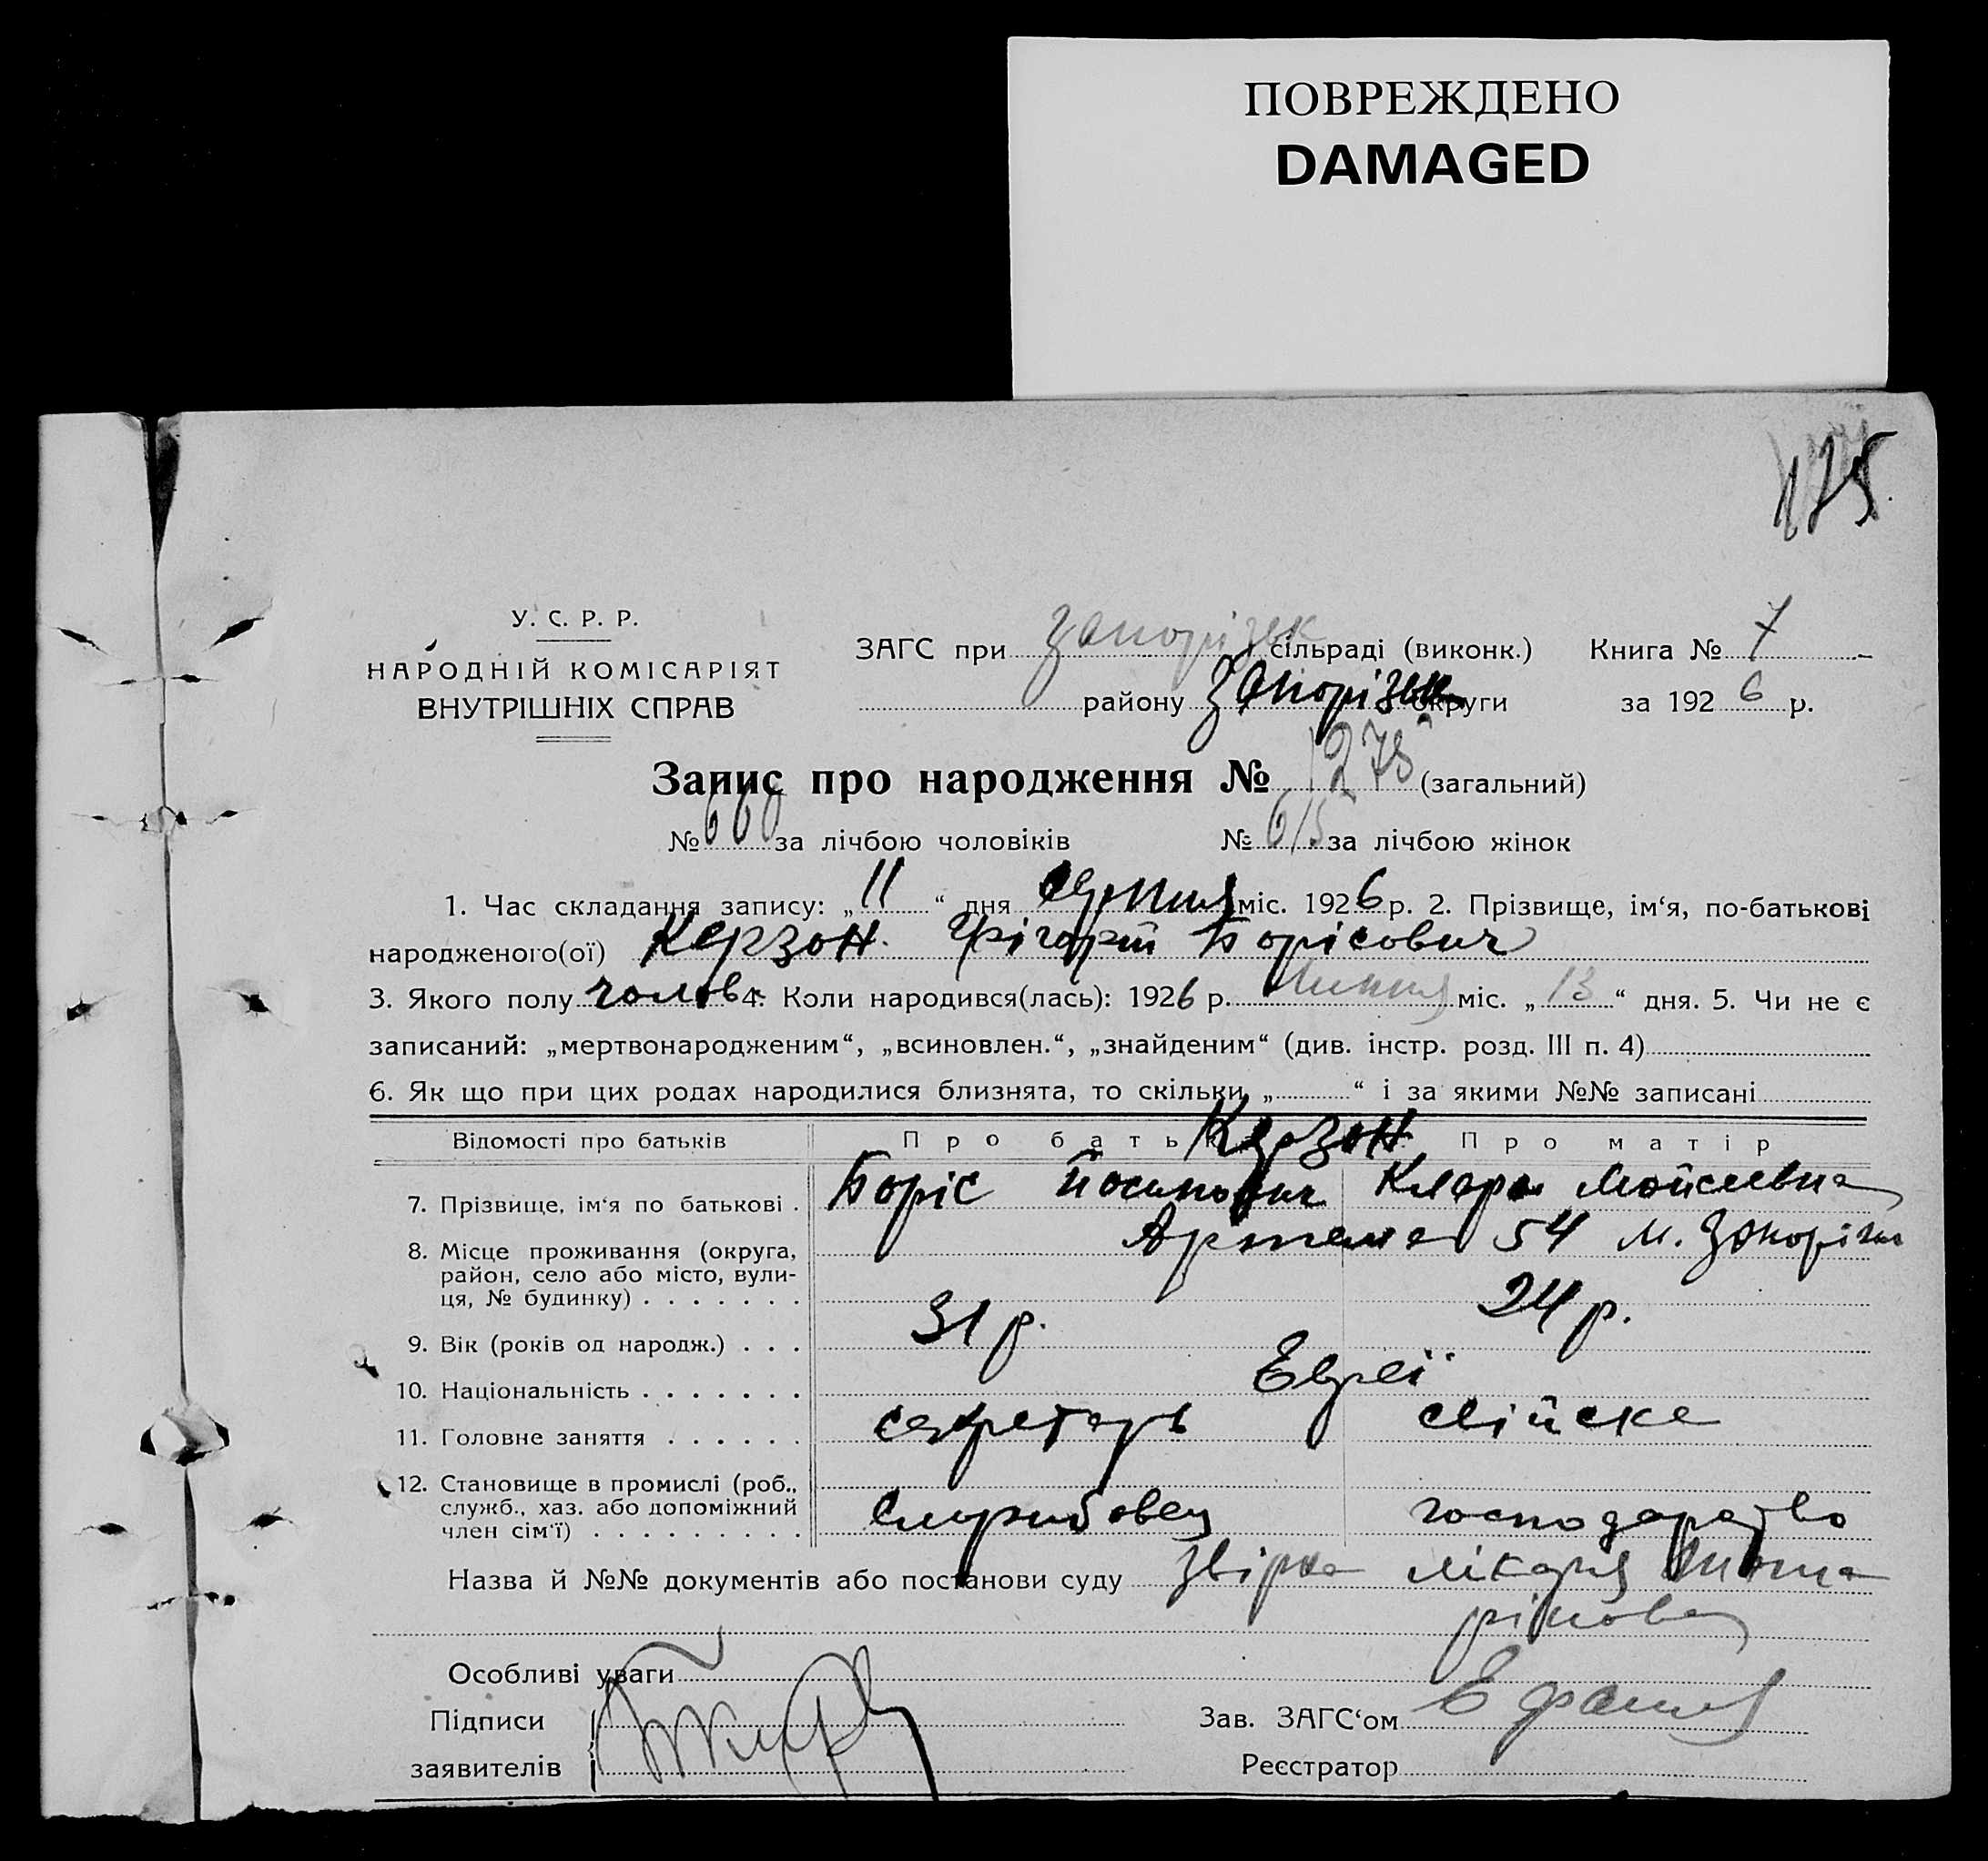 ПОВРЕЖДЕНО
DAMAGED
175
У. С. Р. Р.
НАРОДНІЙ КОМІСАРІЯТ
ВНУТРІШНІХ СПРАВ
ЗАГС при Запорізьк сільраді (виконк.) Книга № 7
району Запорізьк округи за 1926 р.
Запис про народження № 1275 (загальний)
№ 660 за лічбою чоловіків № 615 за лічбою жінок
1. Час складання запису: „11“ дня серпня міс. 1926 р. 2. Прізвище, ім‘я, по-батькові
народженого(ої) Керзон Грігорій Борісович
3. Якого полу чолов. 4. Коли народився(лась): 1926 р. липня міс. „13“ дня. 5. Чи не є
записаний: „мертвонародженим“, „всиновлен.“, „знайденим“ (див. інстр. розд. III п. 4)
6. Як що при цих родах народилися близнята, то скільки „ “ і за якими №№ записані
Відомості про батьків Про батька Керзон Про матір
7. Прізвище, ім‘я по батькові . Боріс Йосипович Клара Мойсеевна
8. Місце проживання (округа, Артема 54 м. Запоріжя
район, село або місто, вули-
ця, № будинку) . . . . . . .
9. Вік (років од народж.) . . . 31 р. 24 р.
10. Національність . . . . . . . Евреї
11. Головне заняття . . . . . . секретарь свійске
12. Становище в промислі (роб.,
служб., хаз. або допоміжний
член сім'ї) . . . . . . . . . службовец господарство
Назва й №№ документів або постанови суду лікаря
Особливі уваги
Підписи Зав. ЗАГС‘ом
заявителів Реєстратор